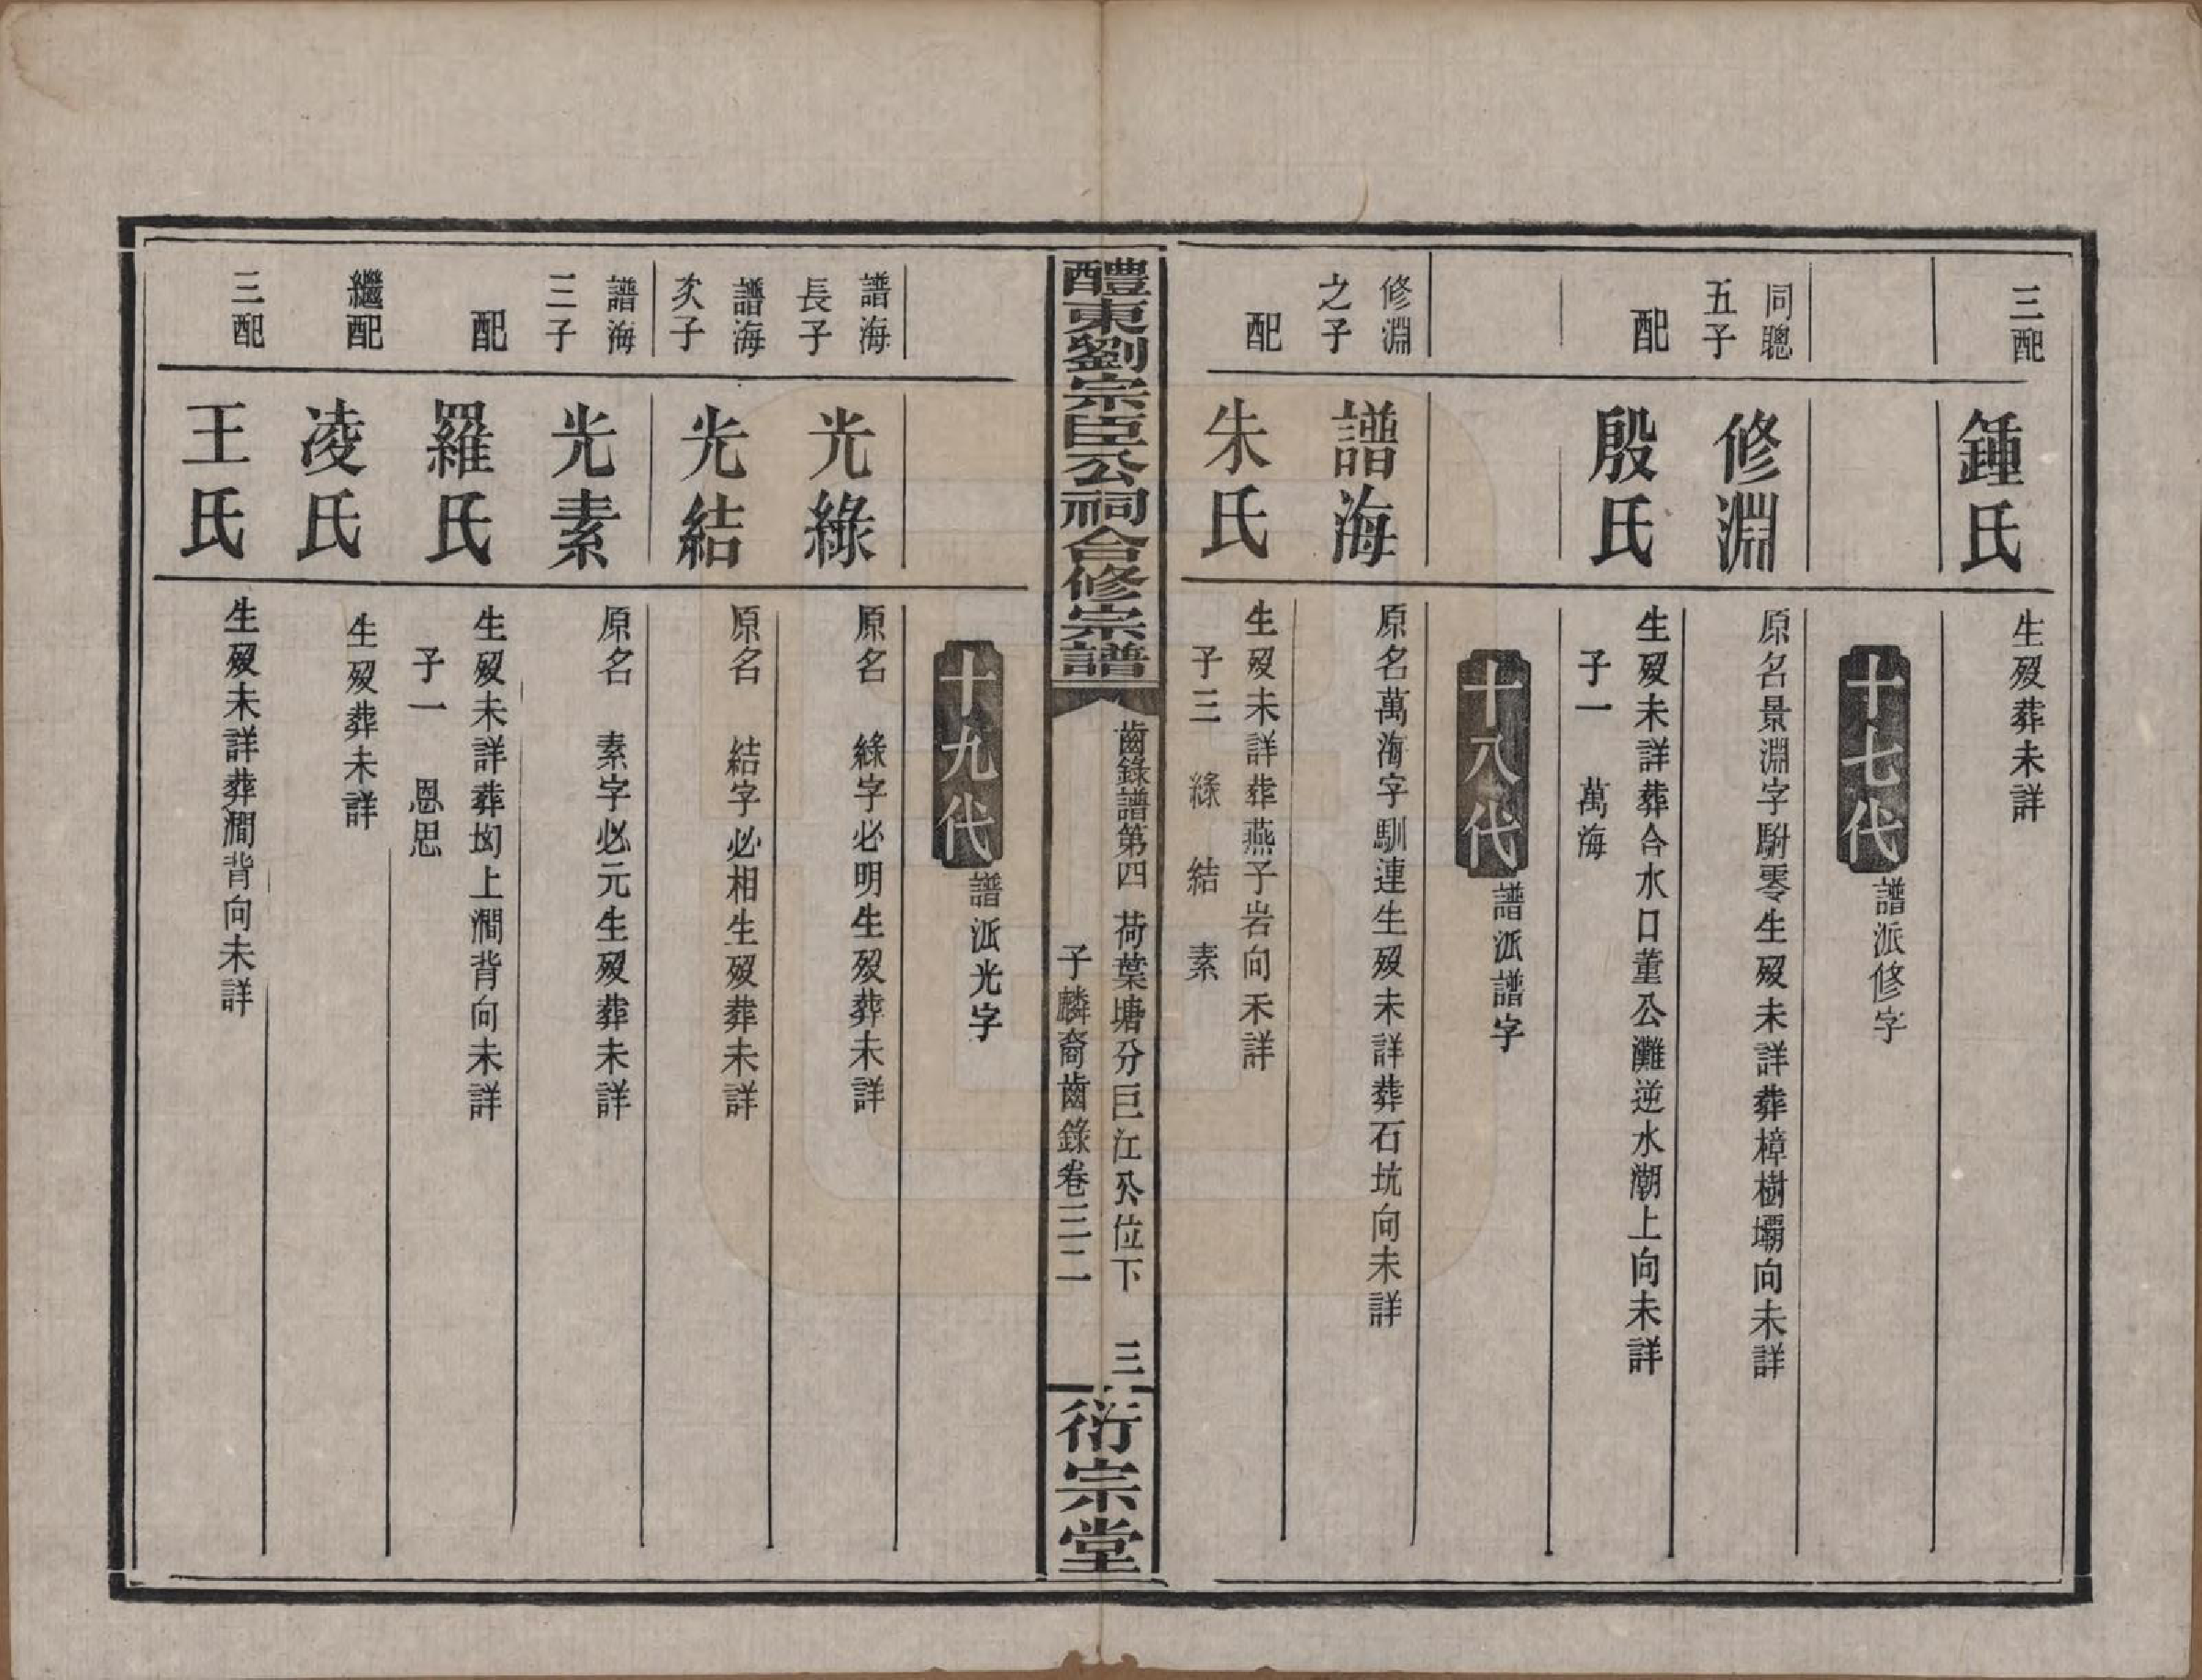 三配
鍾氏
生歿葬未詳
十七代
譜派修字
同聰
五子
修淵
原名景淵字駙零生歿未詳葬樟樹壩向未詳
配
殷氏
生歿未詳葬合水口董公灘逆水潮上向未詳
子一　萬海
十八代
譜派譜字
修淵
之子
譜海
原名萬海字馴連生歿未詳葬石坑向未詳
配
朱氏
生歿未詳葬燕子岩向未詳
子三　綠　結　素
醴東劉宗臣公祠合修宗譜
齒錄譜第四　荷葉塘分巨江公位下　三
子麟裔齒錄卷三二
衍宗堂
十九代
譜派光字
譜海
長子
光綠
原名　綠字必明生歿葬未詳
譜海
次子
光結
原名　結字必相生歿葬未詳
譜海
三子
光素
原名　素字必元生歿葬未詳
配
羅氏
生歿未詳葬㘭上澗背向未詳
子一　恩思
繼配
凌氏
生歿葬未詳
三配
王氏
生歿未詳葬澗背向未詳